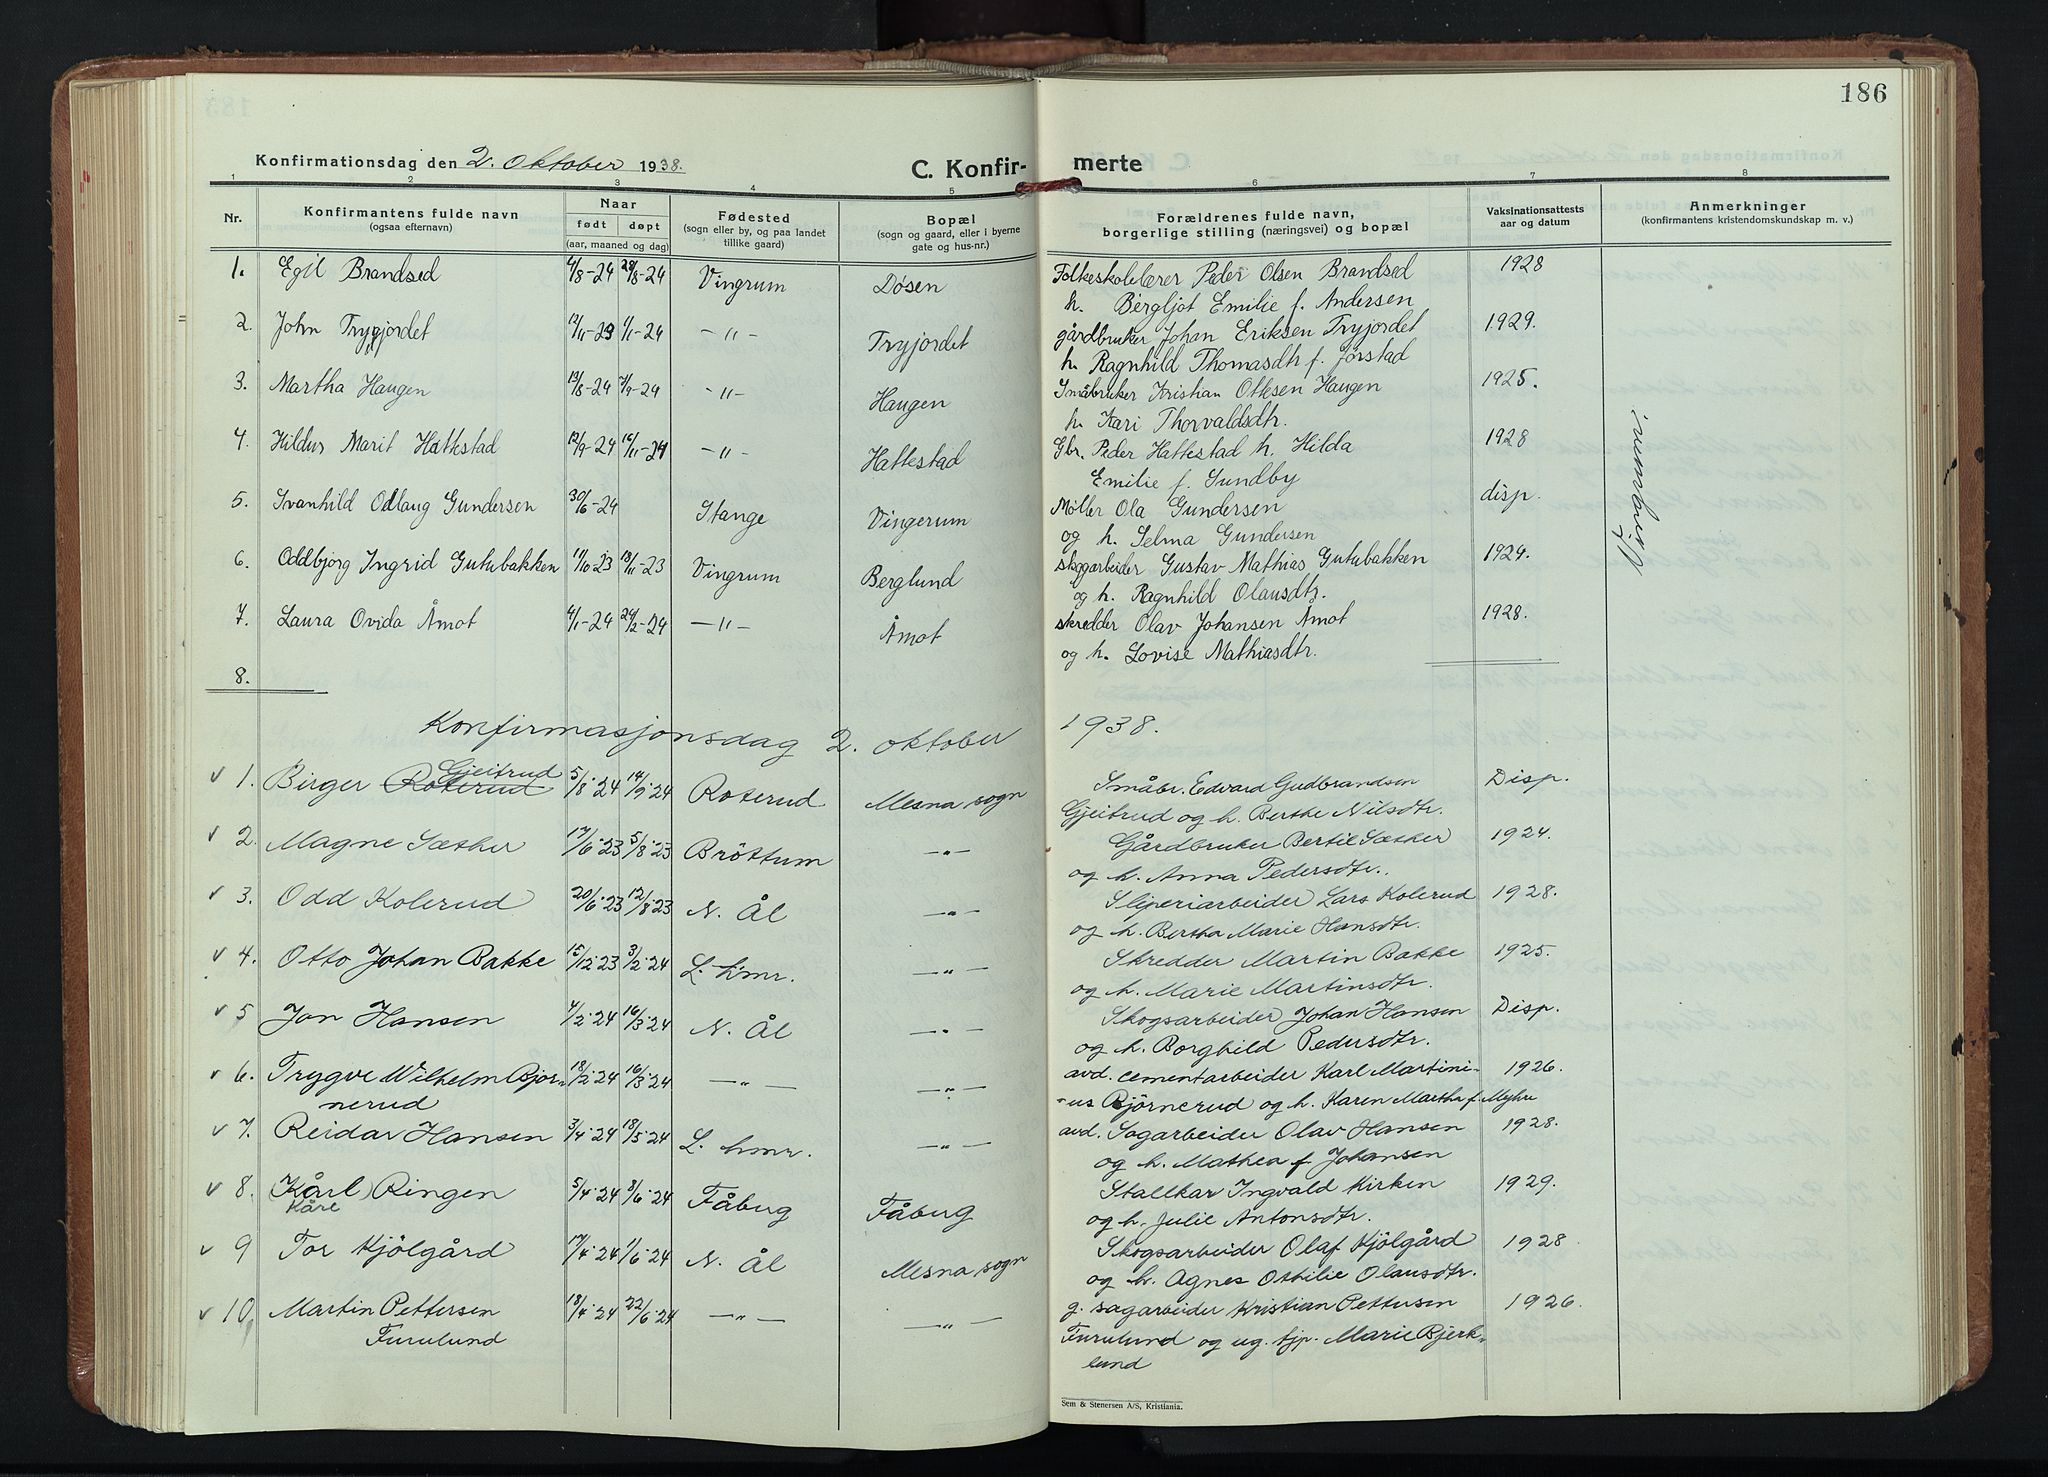 186
Konfirmationsdag den 2. oktober 1938.
C. Konfir- merte
1 2 3 4 5 6 7 8
Nr.
Konfirmantens fulde navn
(ogsaa efternavn)
Naar
født døpt
(aar, maaned og dag)
Fødested
(sogn eller by, og paa landet
tillike gaard)
Bopæl
(sogn og gaard, eller i byerne
gate og hus-nr.)
Forældrenes fulde navn,
borgerlige stilling (næringsvei) og bopæl
Vaksinationsattests
aar og datum
Anmerkninger
(konfirmantens kristendomskundskap m. v.)
1. Egil Brandsed 4/8-24 28/8-24 Vingrum Døsen Folkeskolelærer Peder Olsen Brandsed 1928
h. Bergljot Emilie f. Andersen
2. John Tryjordet 12/11-23 1/1-24 -"- Tryjordet gårdbruker Johan Eriksen Tryjordet 1929.
h. Ragnhild Thomasdtr f. Jørstad
3. Martha Haugen 13/8-24 7/9-24 -"- Haugen Småbruker Kristian Ottesen Haugen 1925.
h. Kari Thorvaldsdtr.
4. Hildur Marit Hattestad 12/9-24 16/11-24 -"- Hattestad Gbr. Peder Hattestad h. Hilda 1928
Emilie f. Sundby
5. Svanhild Odlaug Gundersen 30/6-24 Stange Vingerum Møller Ola Gundersen disp.
og h. Selma Gundersen
6. Oddbjørg Ingrid Gutubakken 11/10-23 18/11-23 Vingrum Berglund skogarbeider Gustav Mathias Gutubakken 1924.
og h. Ragnhild Olausdtr.
7. Laura Ovida Åmot 4/1-24 24/2-24 -"- Åmot skredder Olav Johansen Åmot 1928.
og h. Lovise Mathiasdtr.
8.
Vingrum:
Konfirmasjonsdag 2. oktober 1938.
v 1. Birger Roterud Gjeitrud 5/8-24 14/9-24 Roterud Mesna sogn Småbr. Edvard Gudbrandsen Disp.
Gjeitrud og h. Berthe Nilsdtr.
v 2. Magne Sæther 17/6-23 5/8-23 Bröttum -"- Gårdbruker Bertil Sæther 1924.
og h. Anna Pedersdtr.
v 3. Odd Kolerud 20/6-23 12/8-23 N. Ål -"- Sliperiarbeider Lars Kolerud 1928.
og h. Bertha Marie Hansdtr.
v 4. Otto Johan Bakke 15/12-23 3/2-24 L. hmr. -"- Skredder Martin Bakke 1925.
og h. Marie Martinsdtr.
v 5 Jon Hansen 4/2-24 16/3-24 N. Ål -"- Skogsarbeider Johan Hansen Disp.
og h. Borghild Pedersdtr.
v 6. Trygve Wilhelm Bjør- 18/2-24 16/3-24 -"- -"- avd. cementarbeider Karl Martini- 1926.
nerud -us Bjørnerud og h. Karen Martha f. Myhre
v 7. Reidar Hansen 3/4-24 18/5-24 L. hmr. -"- avd. Sagarbeider Olav Hansen 1928.
og h. Mathea f. Johansen
v 8. (Kårl) Ringen 5/4-24 8/6-24 Fåbug Fåbug Stallkar Ingvald Kirken 1929.
Kåre og h. Julie Antonsdtr.
v 9 Tor Kjölgård 17/4-24 1/6-24 N. Ål Mesna sogn Skogsarbeider Olaf Kjölgård 1928
og h. Agnes Othilie Olausdtr.
v 10. Martin Pettersen 18/4-24 22/6-24 -"- -"- g. sagarbeider Kristian Pettersen 1926.
Furulund Furulund og ug. tjp. Marie Bjerk-
lund
Sem & Stenersen A/S, Kristiania.